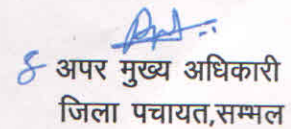 अपर मुख्य अधिकारी
जिला पचायत,सम्भल